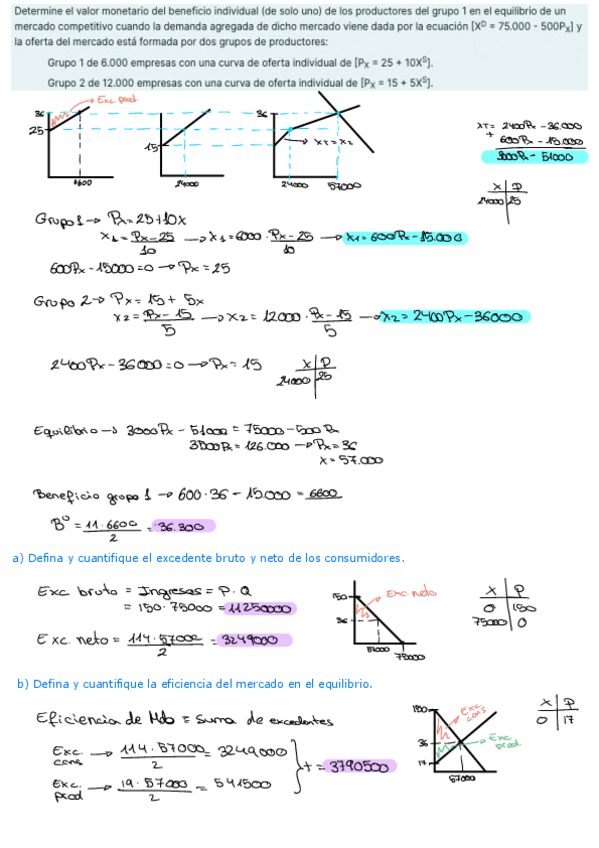 Determine el valor monetario del beneficio individual (de solo uno) de los productores del grupo 1 en el equilibrio de un
mercado competitivo cuando la demanda agregada de dicho mercado viene dada por la ecuación [Xᴰ = 75.000 - 500Pₓ] y
la oferta del mercado está formada por dos grupos de productores:
Grupo 1 de 6.000 empresas con una curva de oferta individual de [Pₓ = 25 + 10Xˢ].
Grupo 2 de 12.000 empresas con una curva de oferta individual de [Pₓ = 15 + 5Xˢ].
Exc. prod.
36
25
6600
15
24000
36
XT = X2
24000 57000
XT = 2400Px - 36.000
+
600Px - 15.000
3000Px - 51000
X P
24000 25
Grupo 1 → Px = 25 + 10x
X1 = Px - 25 / 10 → X1 = 6000 · Px - 25 / 10 → X1 = 600Px - 15.000
600Px - 15000 = 0 → Px = 25
Grupo 2 → Px = 15 + 5x
X2 = Px - 15 / 5 → X2 = 12000 · Px - 15 / 5 → X2 = 2400Px - 36000
2400Px - 36000 = 0 → Px = 15
X P
24000 25
Equilibrio → 3000Px - 51000 = 75000 - 500Px
3500Px = 126.000 → Px = 36
X = 57.000
Beneficio grupo 1 → 600 · 36 - 15.000 = 6600
Bº = 11 · 6600 / 2 = 36.300
a) Defina y cuantifique el excedente bruto y neto de los consumidores.
Exc. bruto = Ingresos = P · Q
= 150 · 75000 = 11250000
Exc. neto = 114 · 57000 / 2 = 3249000
150
Exc. neto
36
57000
75000
X P
0 150
75000 0
b) Defina y cuantifique la eficiencia del mercado en el equilibrio.
Eficiencia de Mdo = Suma de excedentes
Exc. cons → 114 · 57000 / 2 = 3249000
Exc. prod → 19 · 57000 / 2 = 541500
+ = 3790500
150
Exc cons
36
Exc prod.
17
57000
X P
0 17